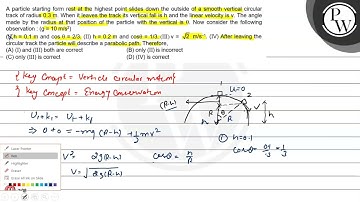 A particle starting form rest at the highest point slides down the outside of a smooth vertical circular
track of radius 0.3 m. When it leaves the track its vertical fall is h and the linear velocity is v. The angle
made by the radius at that position of the particle with the vertical is θ. Now consider the following
observation : (g = 10 ms²)
(I) h = 0.1 m and cos θ = 2/3. (II) h = 0.2 m and cosθ = 1/3. (III) v = √2 ms⁻¹. (IV) After leaving the
circular track the particle will describe a parabolic path. Therefore,
(A) (I) and (III) both are correct (B) only (II) is incorrect
(C) only (III) is correct (D) (IV) is incorrect
{ Key Concept = Vertical circular motion }
{ Key Concept = Energy Conservation
(R-h) 1 u=0
2
h R θ R h V
U₁+k₁ = U₂+k₂
⇒ 0+0 = -mg(R-h) + 1/2 mv²
① h=0.1
V² = 2g(R-h) cosθ = h/R cosθ = 0.1/.3 = 1/3
V = √2g(R-h)
Laser Pointer
Pen
Highlighter
Eraser